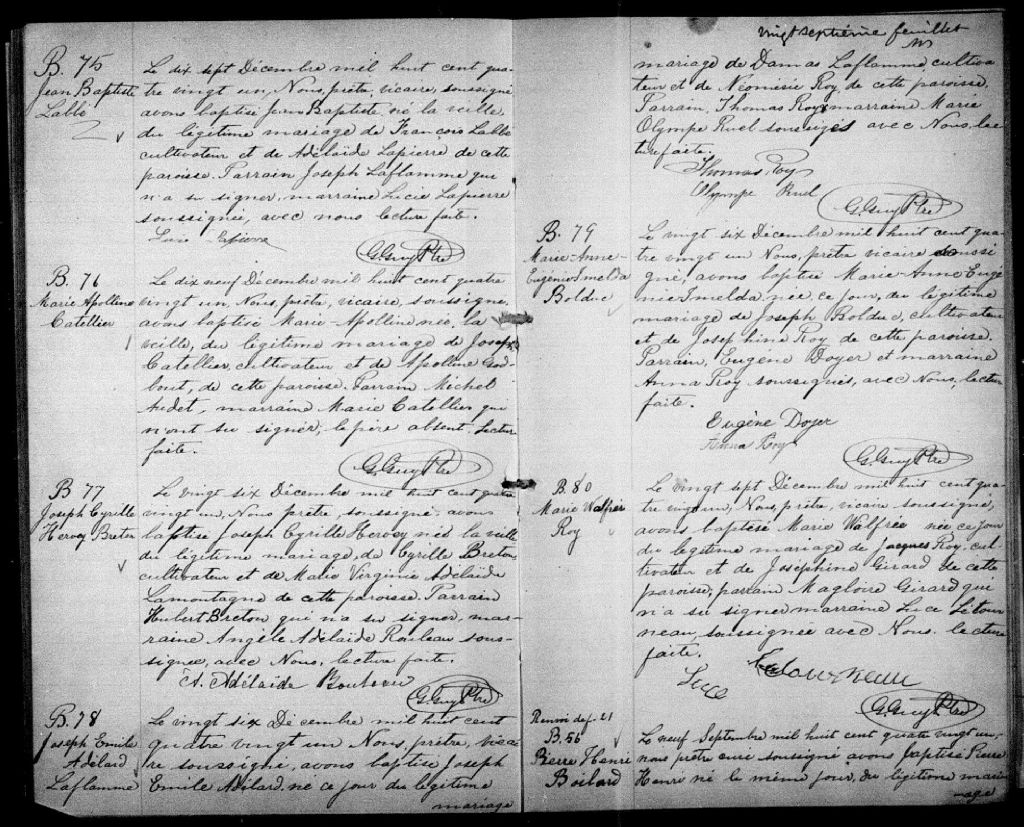 B. 75
Jean Baptiste
Labbé
Le dix sept Décembre mil huit cent qua-
tre vingt un, Nous, prêtre, vicaire, soussigné
avons baptisé Jean Baptiste né la veille,
du légitime mariage de François Labbé
cultivateur et de Adélaïde Lapierre de cette
paroisse. Parrain Joseph Laflamme qui
n'a su signer, marraine Lucie Lapierre
soussignée, avec nous lecture faite.
Lucie Lapierre
G. Guy Ptre
B. 76
Marie Apolline
Catellier
Le dix neuf Décembre mil huit cent quatre
vingt un, Nous, prêtre, vicaire, soussigné,
avons baptisé Marie-Apolline née, la
veille, du légitime mariage de Joseph
Catellier, cultivateur et de Apolline God-
bout, de cette paroisse. Parrain Michel
Audet, marraine Marie Catellier qui
n'ont su signer, le père absent. Lecture
faite.
G. Guy Ptre
B 77
Joseph Cyrille
Hervey Breton
Le vingt six Décembre mil huit cent quatre
vingt un, Nous prêtre, soussigné avons
baptisé Joseph Cyrille Hervey né la veille
du légitime mariage, de Cyrille Breton
cultivateur et de Marie Virginie Adélaïde
Lamontagne de cette paroisse. Parrain
Hubert Breton qui n'a su signer, mar-
raine Angèle Adélaïde Rouleau sous-
signée, avec Nous, lecture faite.
A. Adélaïde
G. Guy Ptre
B. 78
Joseph Emile
Adélard
Laflamme
Le vingt six Décembre mil huit cent
quatre vingt un Nous, prêtre, vicai
re soussigné, avons baptisé Joseph
Emile Adélard. né ce jour du légitime
mariage
vingt septième feuillet
mariage de Damas Laflamme cultiva-
teur et de Néomésie Roy de cette paroisse.
Parrain, Thomas Roy, marraine Marie
Olympe Ruel soussignés avec Nous, lec-
ture faite.
Thomas Roy
Olympe Ruel
G. Guy Ptre
B. 79
Marie-Anne-
Eugénie Imelda
Bolduc
Le vingt six Décembre mil huit cent qua-
tre vingt un Nous, prêtre vicaire soussi
gné, avons baptisé Marie-Anne Eugé
nie Imelda née, ce jour, du légitime
mariage de Joseph Bolduc, cultivateur
et de Josephine Roy de cette paroisse.
Parrain, Eugène Doyer et marraine
Anna Roy soussignés, avec Nous, lecture
faite.
Eugène Doyer
Anna Roy
G. Guy Ptre
B. 80
Marie Walfrée
Roy
Le vingt sept Décembre mil huit cent qua-
tre vingt un, Nous, prêtre, vicaire, soussigné,
avons baptisé Marie Walfrée née ce jour
du légitime mariage de Jacques Roy, cul-
tivateur et de Joséphine Girard de cette
paroisse, parrain Magloire Girard qui
n'a su signer marraine Luce Létour
neau, soussignée avec Nous. lecture
faite.
Luce Letourneau
G. Guy Ptre
Renvoi def. 21
B. 56
Pierre Henri
Boilard
Le neuf Septembre mil huit cent quatre vingt un,
nous prêtre curé soussigné avons baptisé Pierre
Henri né le même jour, du légitime mari
-age